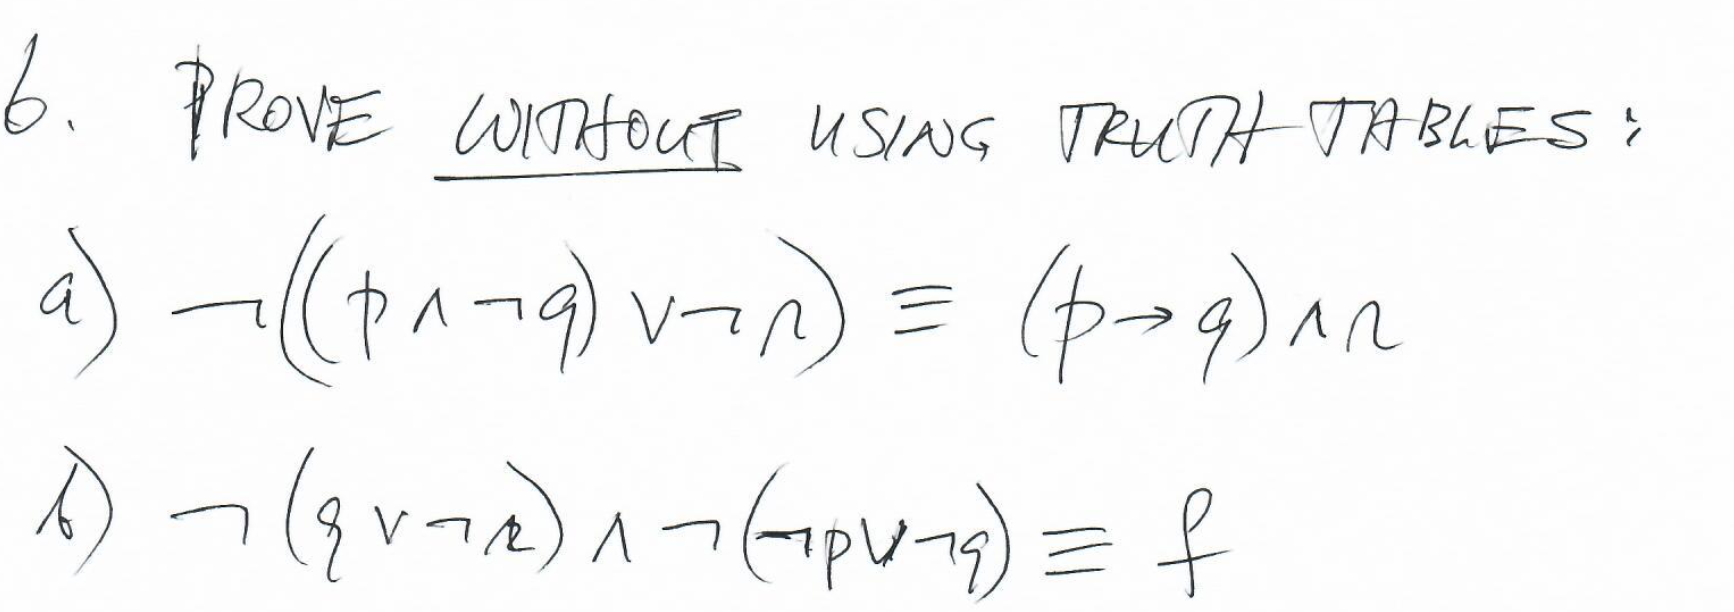 6. PROVE WITHOUT USING TRUTH TABLES:
a) ¬((p∧¬q)∨¬r) ≡ (p→q)∧r
b) ¬(q∨¬r)∧¬(¬p∨¬q) ≡ f